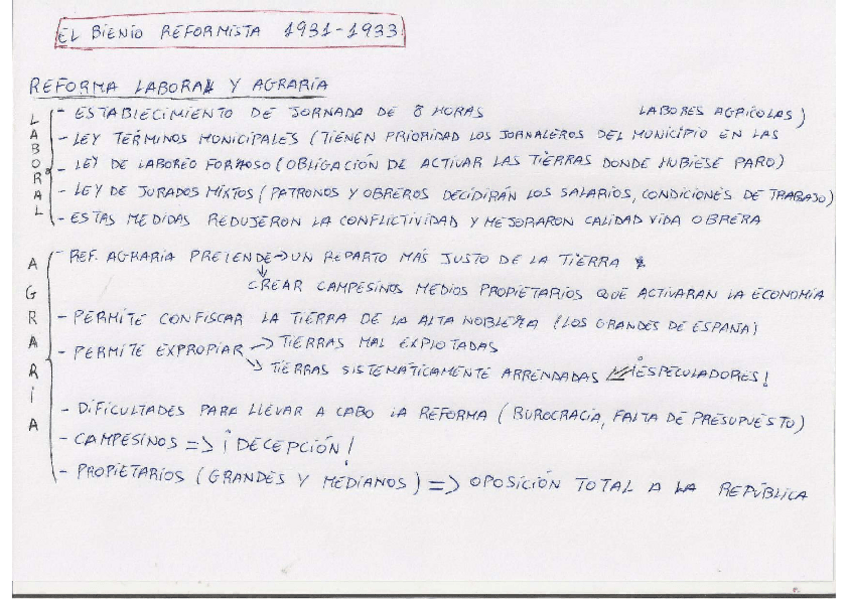 EL BIENIO REFORMISTA 1931-1933
REFORMA LABORAL Y AGRARIA
LABORAL
- ESTABLECIMIENTO DE JORNADA DE 8 HORAS LABORES AGRICOLAS)
- LEY TÉRMINOS MUNICIPALES (TIENEN PRIORIDAD LOS JORNALEROS DEL MUNICIPIO EN LAS
- LEY DE LABOREO FORZOSO (OBLIGACIÓN DE ACTIVAR LAS TIERRAS DONDE HUBIESE PARO)
- LEY DE JURADOS MIXTOS (PATRONOS Y OBREROS DECIDIRÁN LOS SALARIOS, CONDICIONES DE TRABAJO)
- ESTAS MEDIDAS REDUJERON LA CONFLICTIVIDAD Y MEJORARON CALIDAD VIDA OBRERA
AGRARIA
- REF. AGRARIA PRETENDE → UN REPARTO MÁS JUSTO DE LA TIERRA
↓
CREAR CAMPESINOS MEDIOS PROPIETARIOS QUE ACTIVARAN LA ECONOMÍA
- PERMITE CONFISCAR LA TIERRA DE LA ALTA NOBLEZA (LOS GRANDES DE ESPAÑA)
- PERMITE EXPROPIAR → TIERRAS MAL EXPLOTADAS
↘ TIERRAS SISTEMÁTICAMENTE ARRENDADAS ¡ESPECULADORES!
- DIFICULTADES PARA LLEVAR A CABO LA REFORMA (BUROCRACIA, FALTA DE PRESUPUESTO)
- CAMPESINOS => ¡DECEPCIÓN!
- PROPIETARIOS (GRANDES Y MEDIANOS) => OPOSICIÓN TOTAL A LA REPÚBLICA